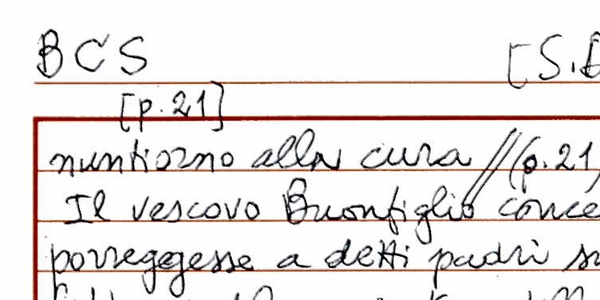 BCS [S.
[p. 21]
nuntiorno alla cura // (p. 21
Il vescovo Buonfiglio conce
porregegesse a detti padri su